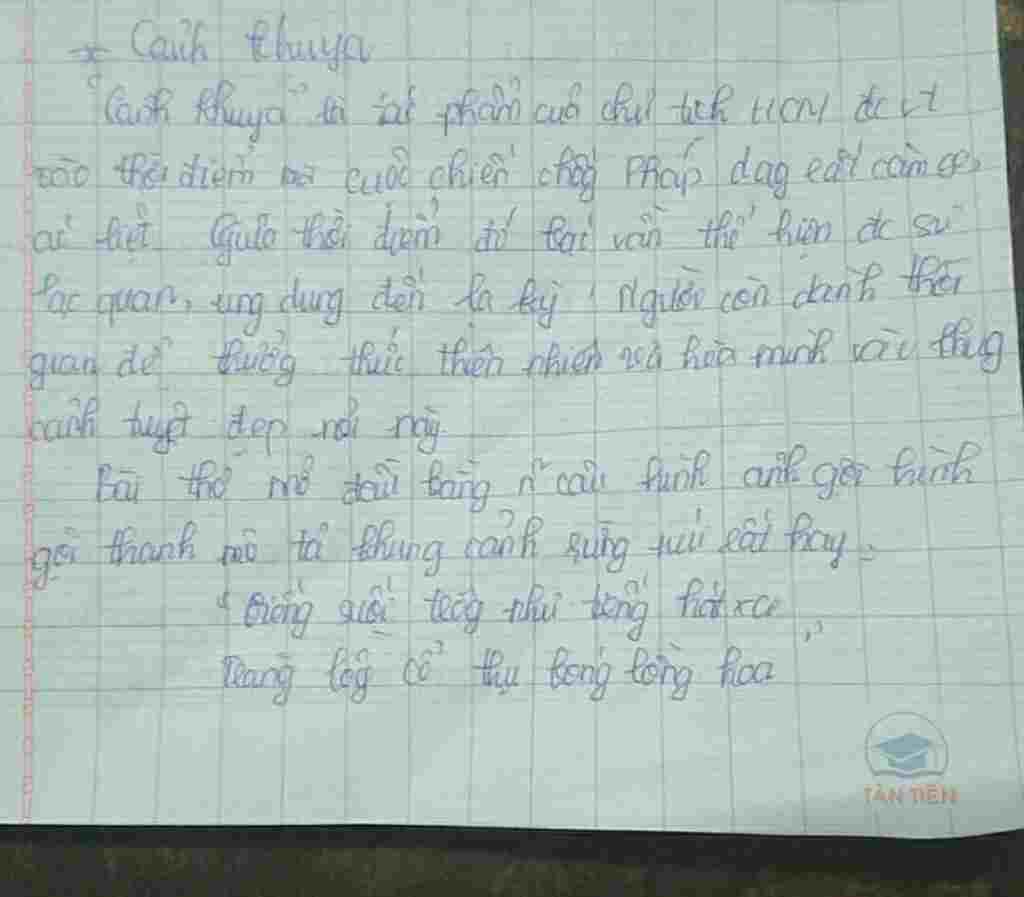 * Cảnh khuya
"Cảnh khuya" là tác phẩm của chủ tịch HCM đc
vào thời điểm mà cuộc chiến chống Pháp đag
ác liệt. Giữa thời điểm đó Bác vẫn thể hiện đc sự
lạc quan, ung dung đến lạ kỳ. Người còn dành thời
quan để thưởng thức thiên nhiên và hòa mình với
cảnh tuyệt đẹp nơi này
Bài thơ mở đầu bằng n~ câu hình ảnh gợi hình
gợi thanh mô tả khung cảnh rừng núi rất hay:
"Tiếng suối trog như tiếng hát xa
Trăng lồg cổ thụ bóng lồng hoa"
TÂN TIẾN